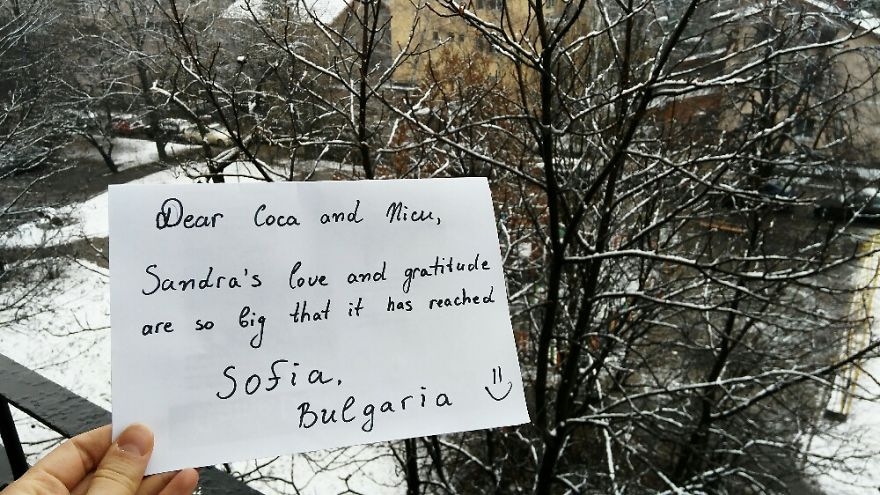 Dear Coca and Nicu,
Sandra's love and gratitude
are so big that it has reached
Sofia,
Bulgaria